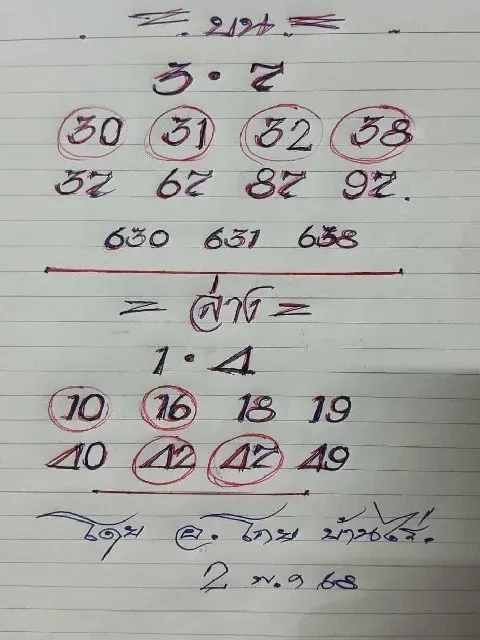 = บน =
3 · 7
30 31 32 38
37 67 87 97.
630 631 638
= ล่าง =
1 · 4
10 16 18 19
40 42 47 49
โดย อ. โกย บ้านไร่.
2 พ.ค 68